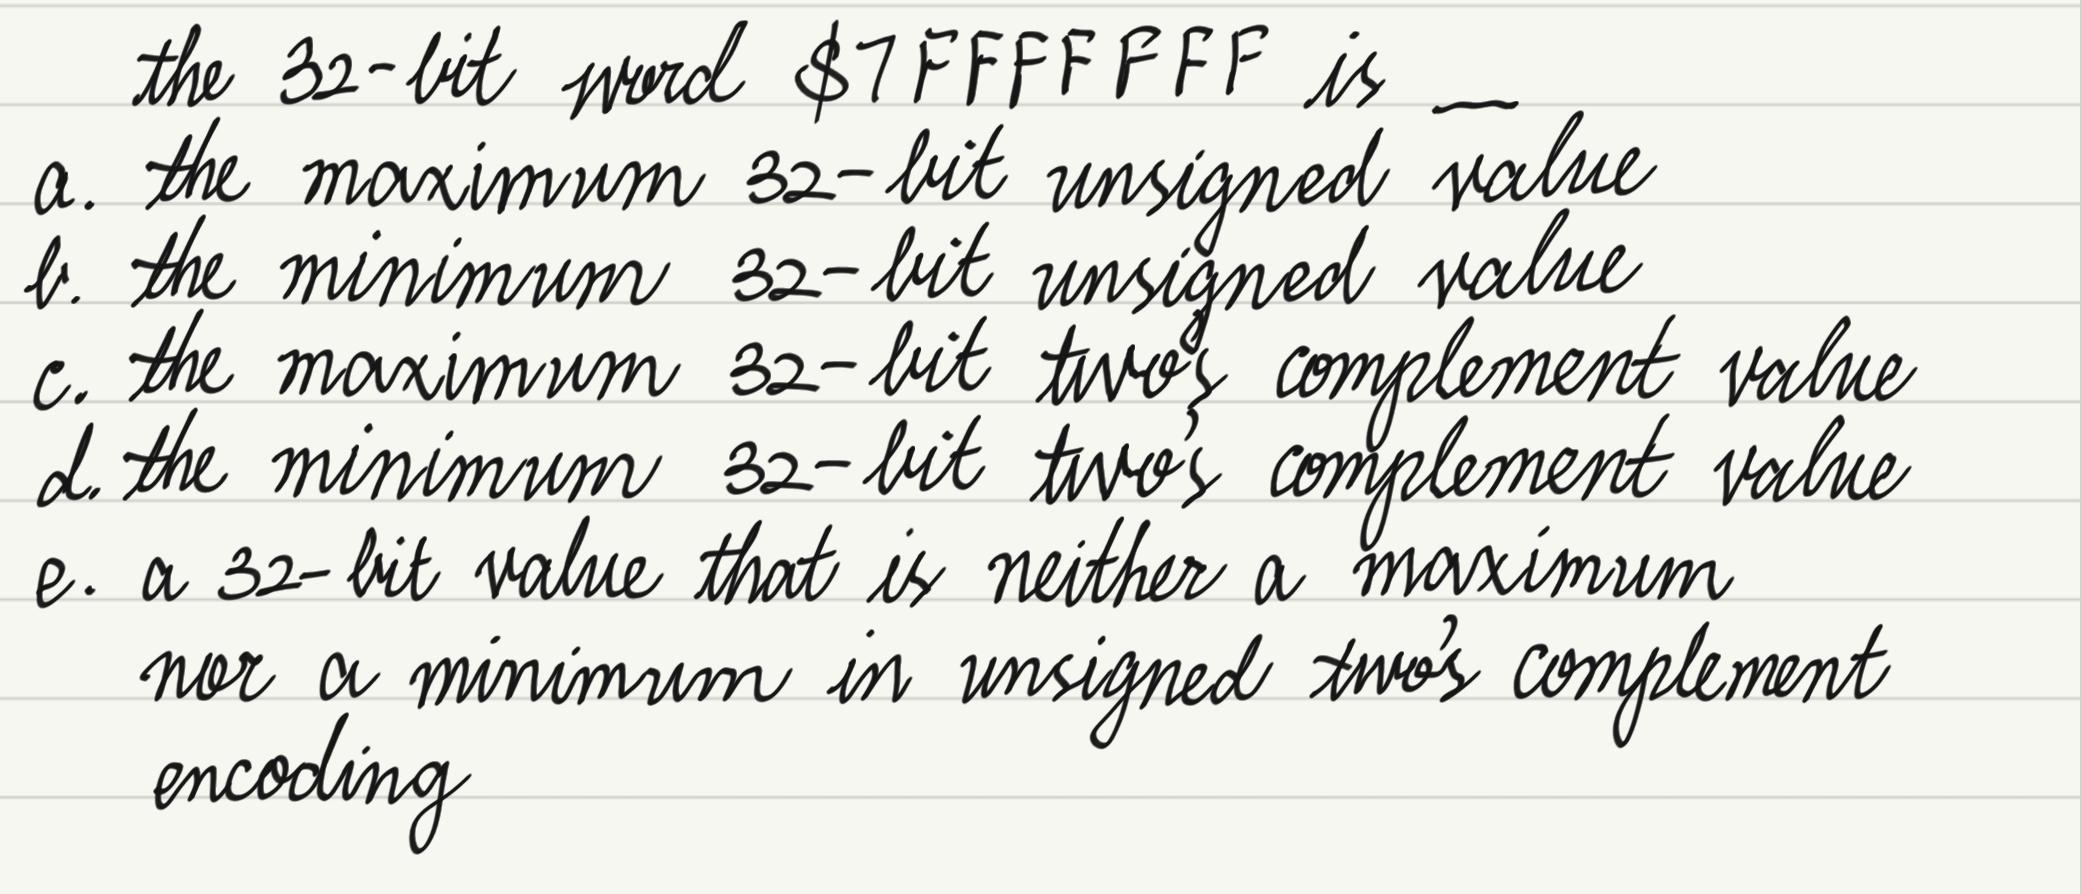 the 32-bit word $7FFFFFFF is __
a. the maximum 32-bit unsigned value
b. the minimum 32-bit unsigned value
c. the maximum 32-bit two's complement value
d. the minimum 32-bit two's complement value
e. a 32-bit value that is neither a maximum
nor a minimum in unsigned two's complement
encoding